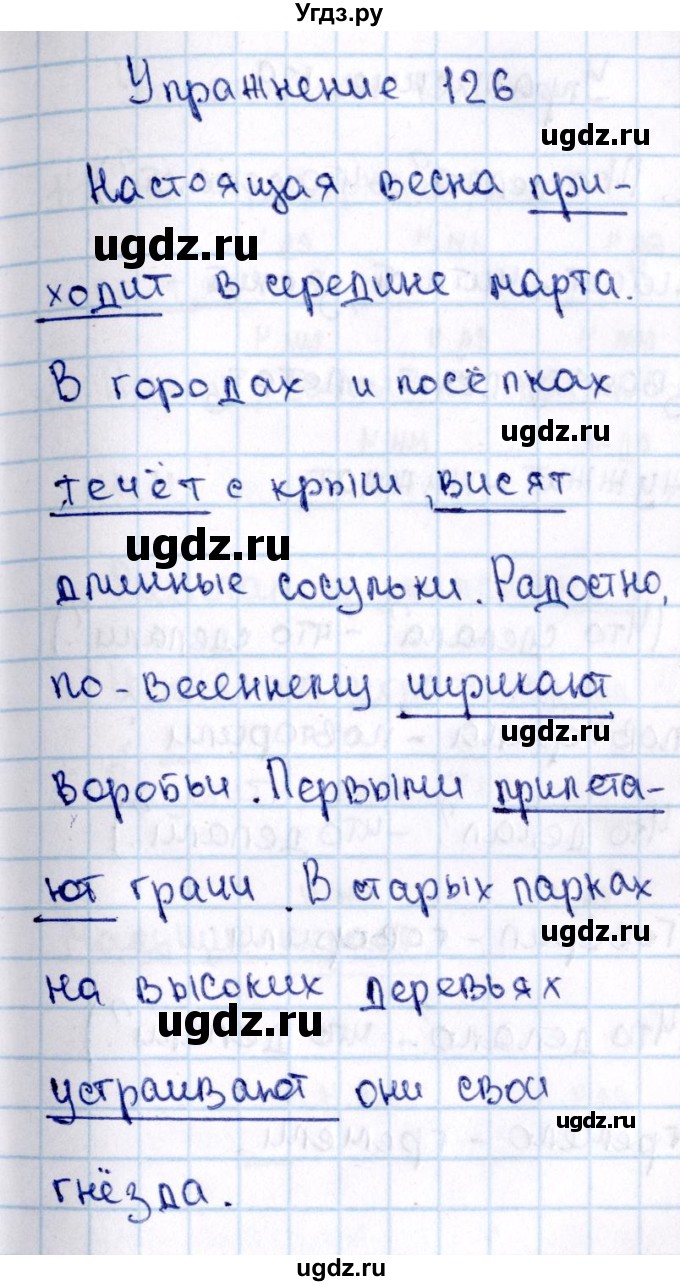 Угдз.ру
Упражнение 126
ugdz.ru
Настоящая весна при-
ugdz.ru
ходит в середине марта.
В городах и посёлках
ugdz.ru
течёт с крыш, висят
ugdz.ru
длинные сосульки. Радостно,
по-весеннему чирикают
ugdz.ru
воробьи. Первыми прилета-
ют грачи. В старых парках
ugdz.ru
на высоких деревьях
ugdz.ru
устраивают они свои
ugdz.ru
гнёзда.
ugdz.ru